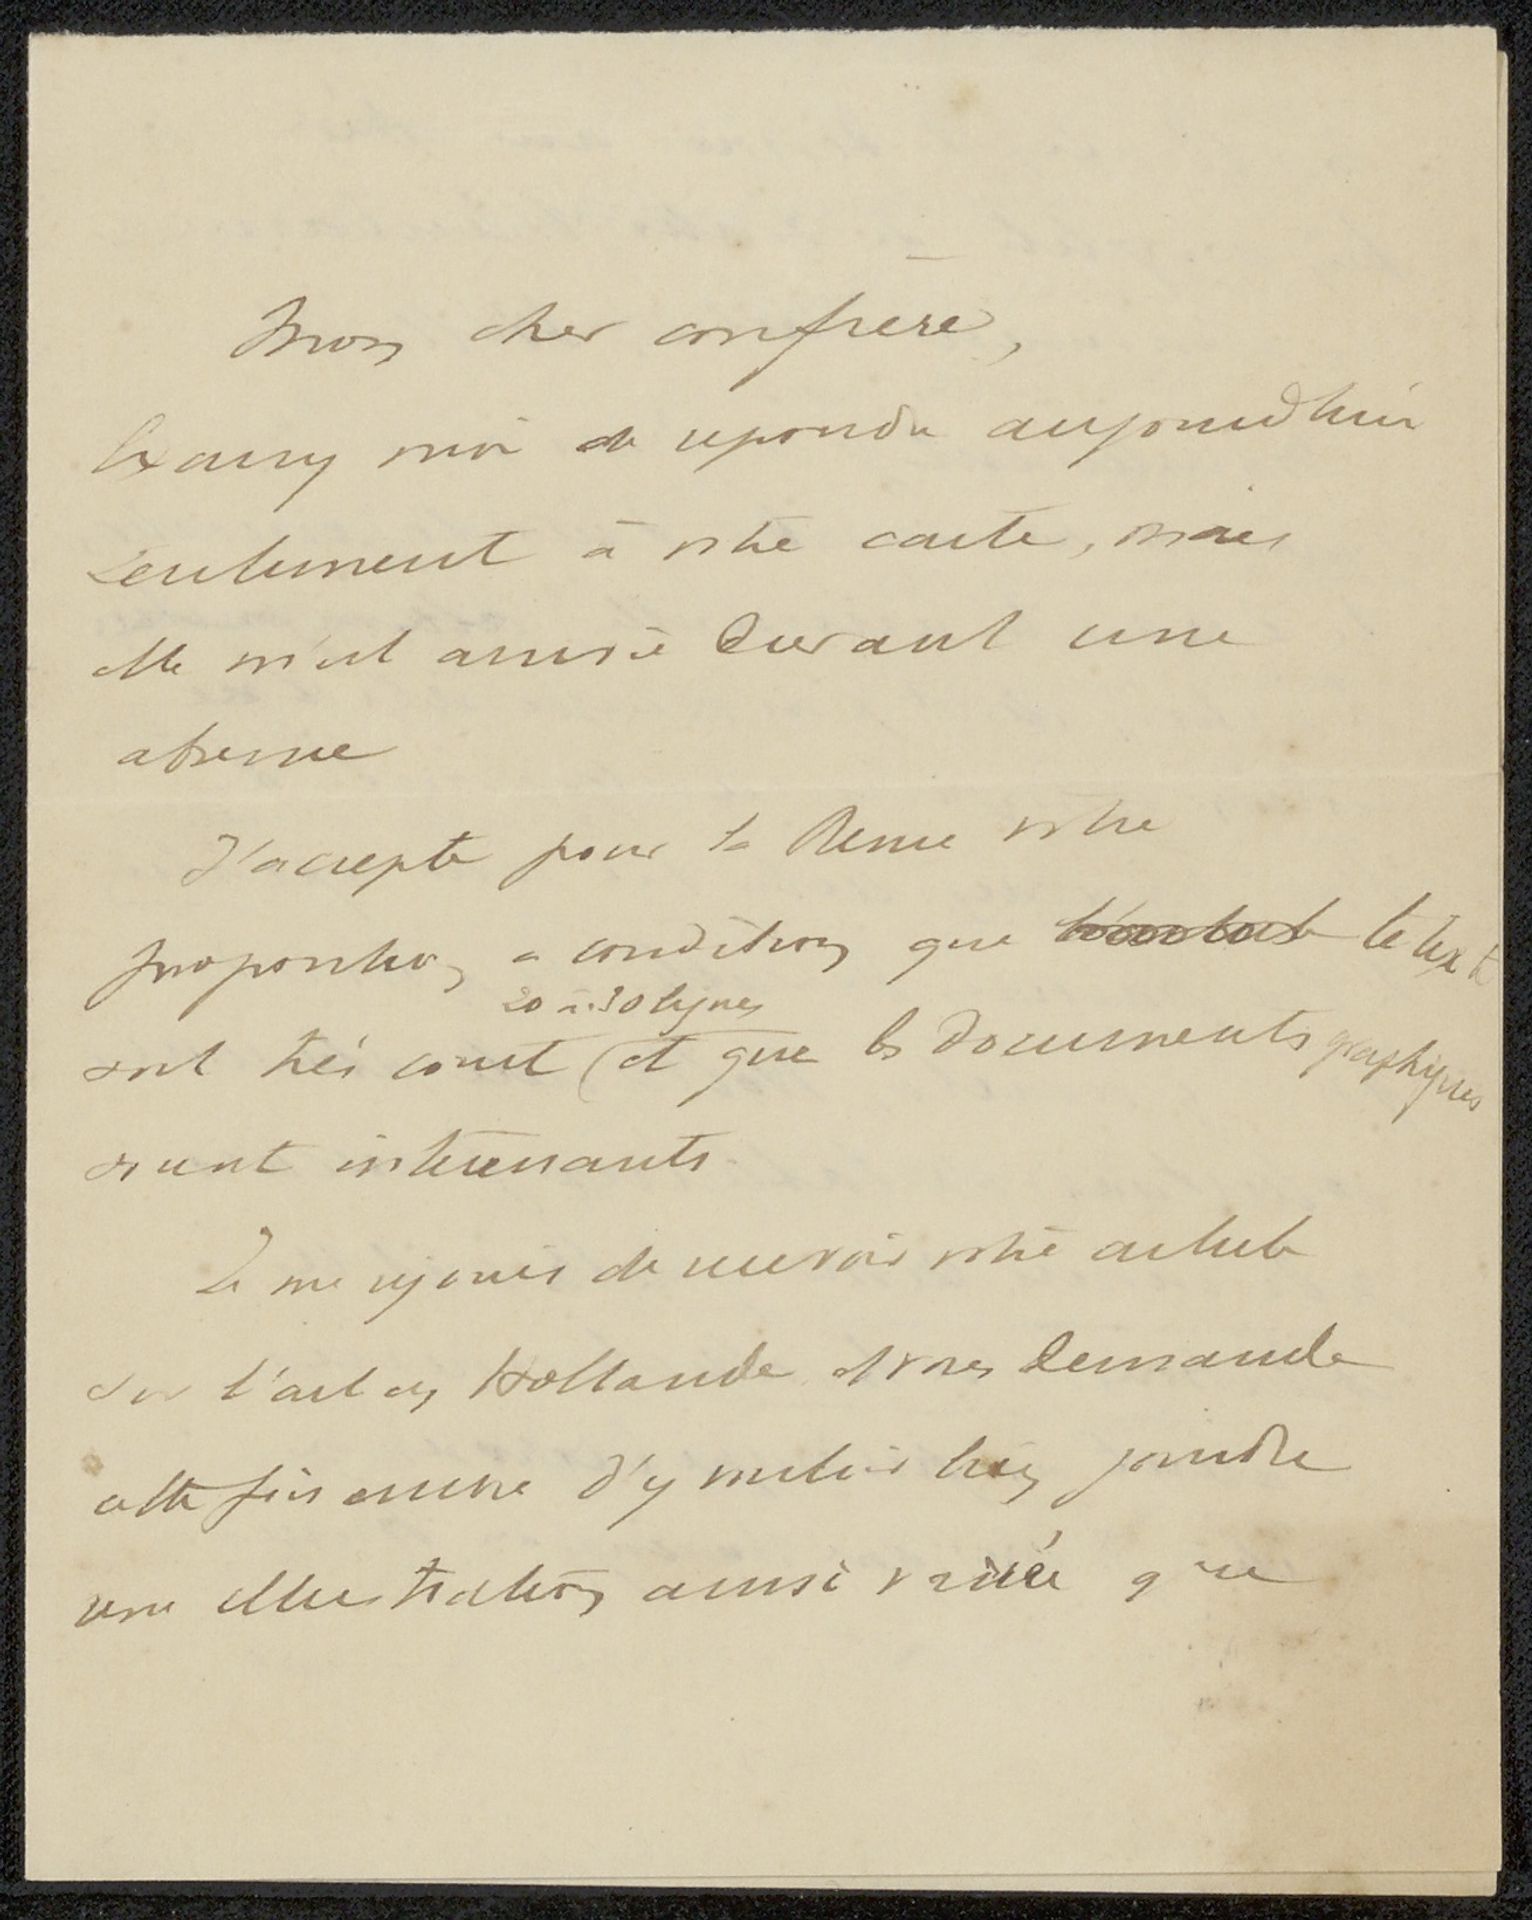 Mon cher confrère,
Excusez moi de repondre aujourdhui
seulement à votre carte, mais
elle m'est arrivée durant une
absence
J'accepte pour la Revue votre
proposition, a condition que le texte
soit très court (et que les documents graphiques
20 à 30 lignes
soient intéressants.
Je me rejouis de recevoir votre article
sur l'art en Hollande et vous demande
cette fois encore d'y vouloir bien joindre
une illustration aussi variée que